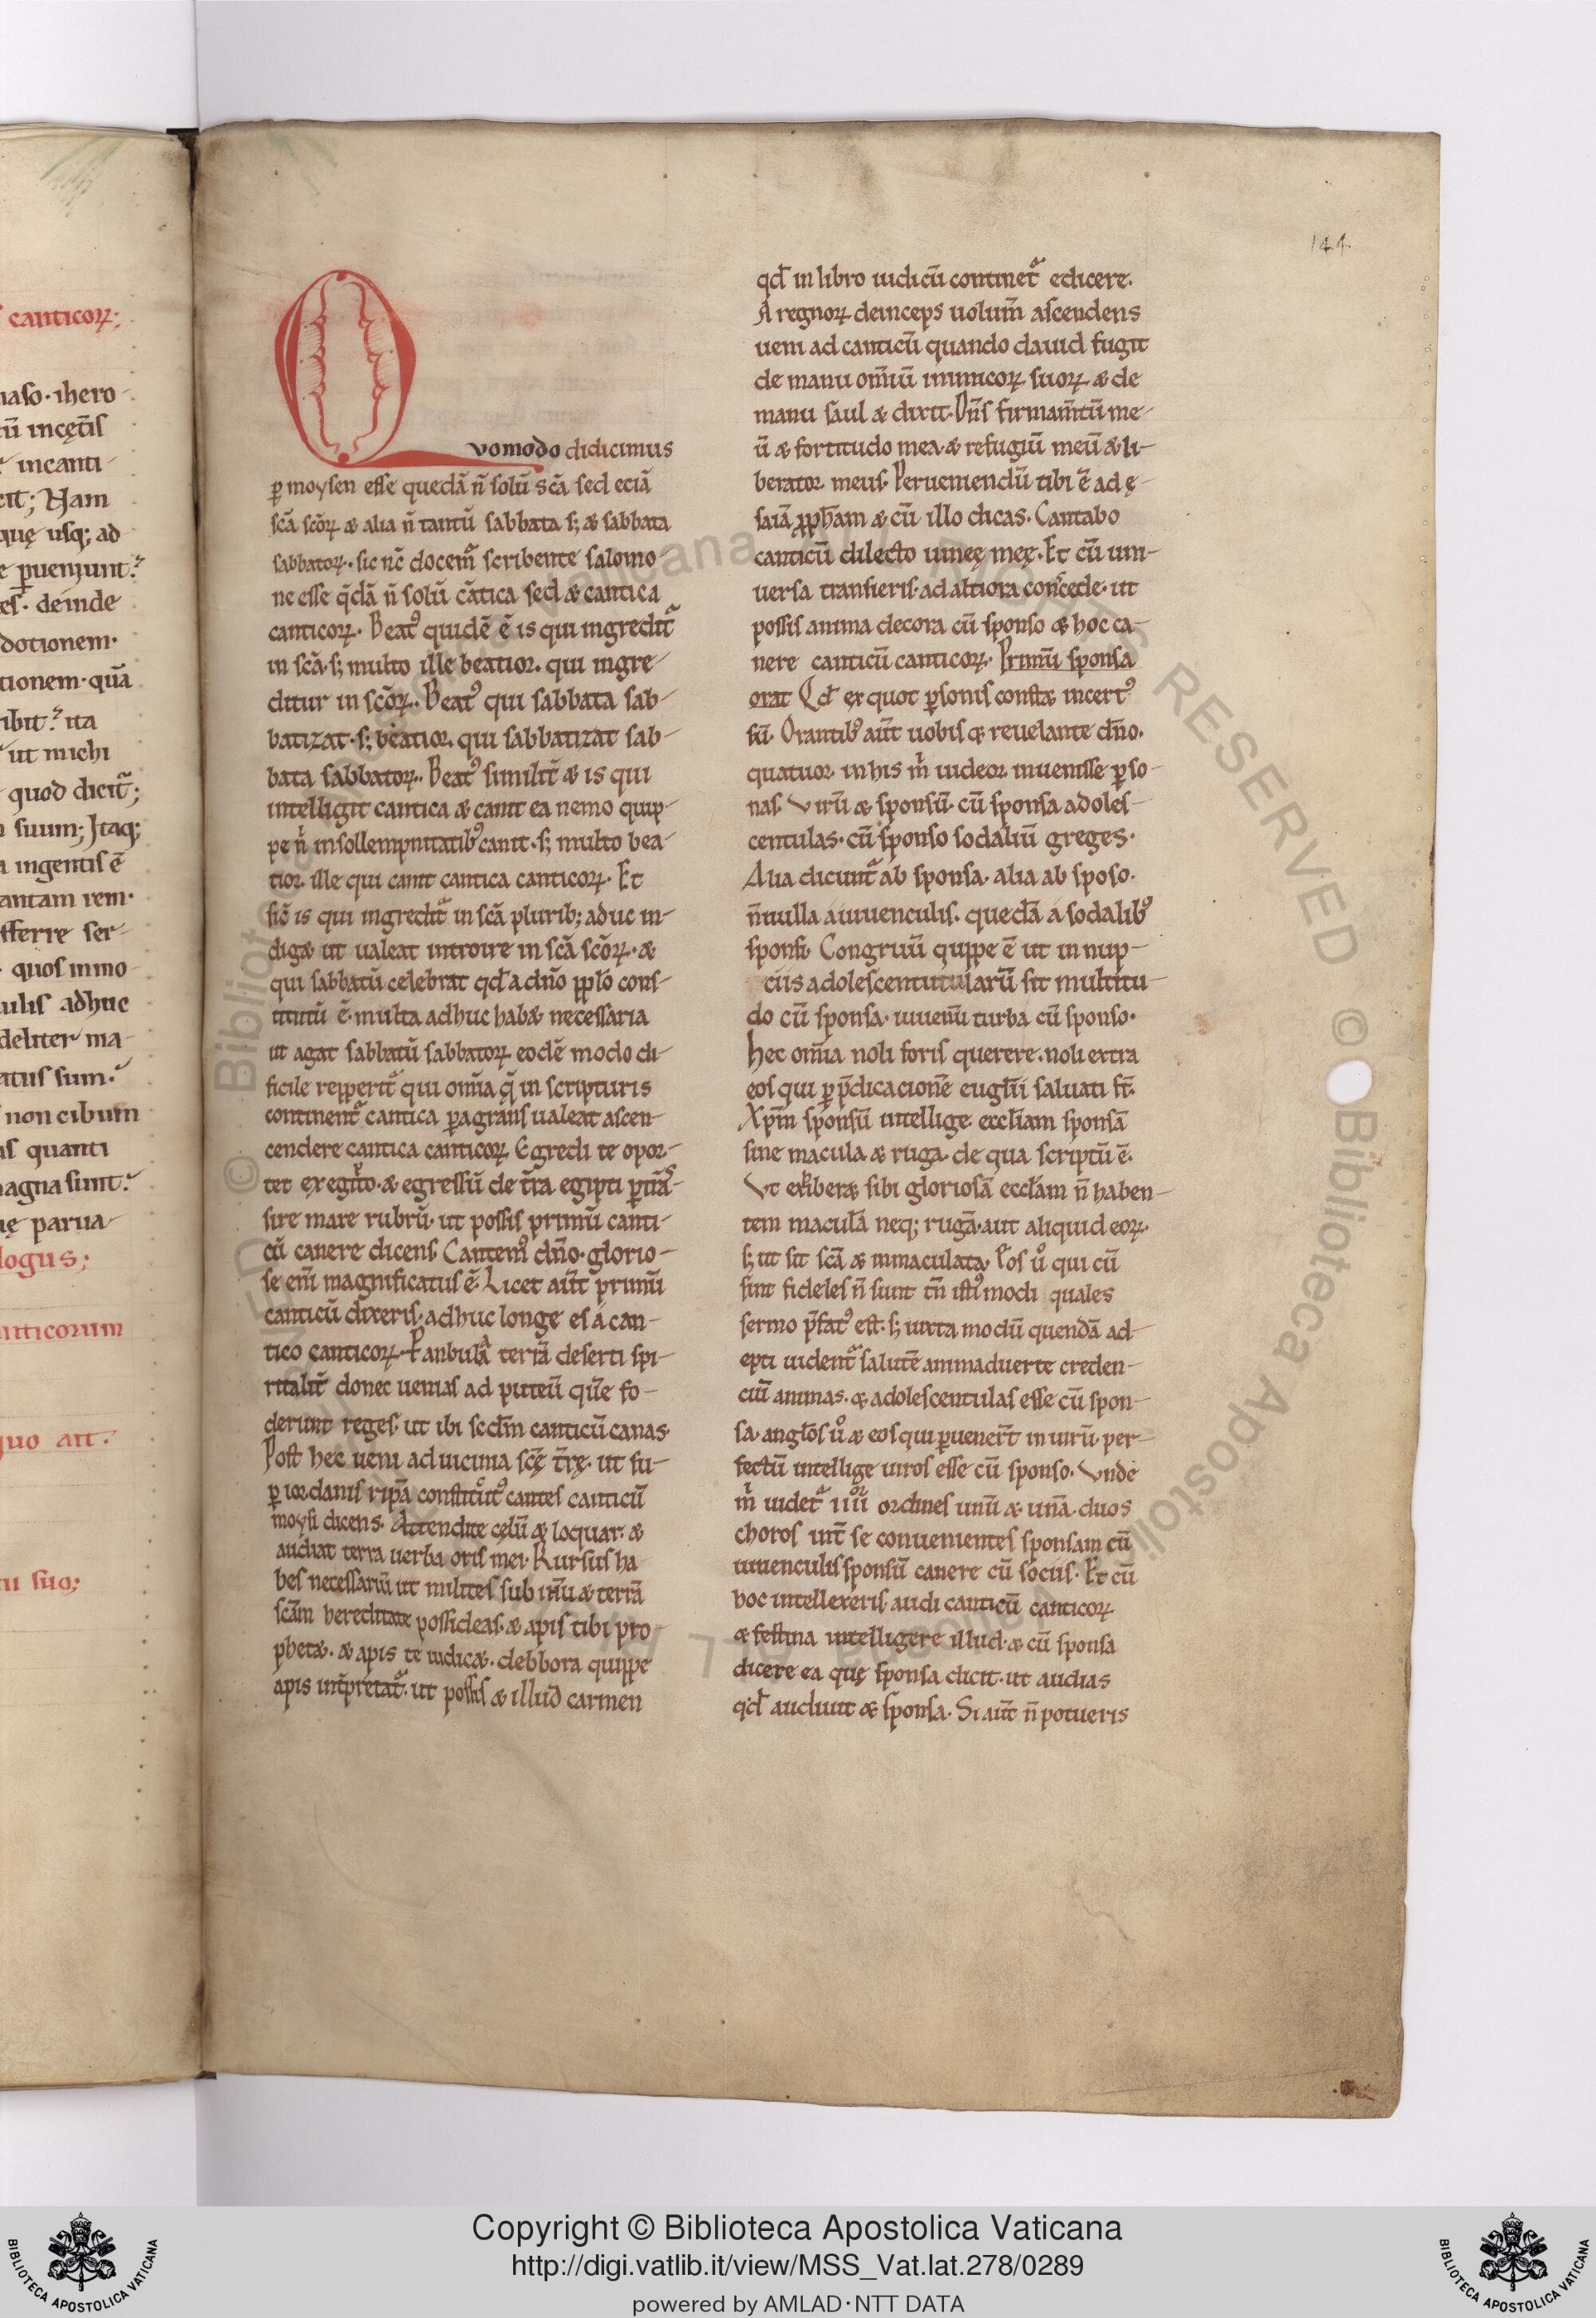 canticoꝝ;
naso· ihero
tū incęt̄is
incanti
cit; Nam
quę usq; ad
e ꝑueniunt.
deinde
dotionem·
tionem· quā
ribit? ita
ut michi
quod dicit᷑;
suum; Itaq;
a ingentis ē
antam rem·
fferre ser
quos inmo
ulis adhuc
deliter ma
atus sum·
non cibum
quanti
magna sunt·
parua
logus;
nticorum
quo
suo;
144
Quomodo didicimus
ꝑ moysen esse quedā n̄ solū sc̄a sed eciā
sc̄a sc̄oꝝ & alia n̄ tantū sabbata s; & sabbata
sabbatoꝝ· sic nc̄ docem᷑ scribente salomo
ne esse q̄dā n̄ solū cātica sed & cantica
canticoꝝ· Beatꝰ quidē ē is qui ingredit᷑
in sc̄a· s; multo ille beatior· qui ingre
ditur in sc̄oꝝ· Beatꝰ qui sabbata sab
batizat· s; beatior· qui sabbatizat sab
bata sabbatoꝝ· Beatꝰ similit̄ & is qui
intelligit cantica & canit ea nemo quip
pe n̄ in sollempnitatibꝰ canit· s; multo bea
tior ille qui canit cantica canticoꝝ· Et
sic̄ is qui ingredit᷑ in sc̄a plurib; aduc in
dig& ut ualeat introire in sc̄a sc̄oꝝ· &
qui sabbatū celebrat qd̄ a dn̄o ꝑꝑlo cons
titutū ē· multa adhuc hab& necessaria
ut agat sabbatū sabbatoꝝ eodē modo di
ficile repperit᷑ qui om̄ia q̄ in scripturis
continent᷑ cantica ꝑagrans ualeat ascen
cendere cantica canticoꝝ Egredi te opor
tet ex egito· & egressū de t̄ra egipti ꝑtrā
sire mare rubrū· ut possis primū canti
cū canere dicens· Cantemꝰ dn̄o· glorio
se em̄ magnificatus ē· Licet aut̄ primū
canticū dixeris· adhuc longe es a can
tico canticoꝝ· Panbula terrā deserti spi
ritalit̄ donec uenias ad puteū quē fo
derunt reges· ut ibi sec̄dm canticū canas·
Post hec ueni ad uicina sc̄ę t̄rę· ut su
ꝑ iordanis ripā constitutꝰ cantes canticū
moysi dicens· Attendite cęlū & loquar· &
audiat terra uerba oris mei· Rursus ha
bes necessariū ut milites sub ih̄u & terrā
sc̄am hereditate possideas· & apis tibi pro
phet&· & apis te iudic&· debbora quippe
apis int̄pretat᷑· ut possis & illud carmen
qd̄ in libro iudicū continet᷑ edicere·
A regnoꝝ deinceps uolum̄ ascendens
ueni ad canticū quando dauid fugit
de manu om̄iū inimicoꝝ suoꝝ & de
manu saul & dixit· Dn̄s firmam̄tū me
ū & fortitudo mea & refugiū meū & li
berator meus· Perueniendū tibi ē ad ę
saiā ꝓph̄am & cū illo dicas· Cantabo
canticū dilecto uineę meę· Et cū uni
uersa transieris· ad altiora concede· ut
possis anima decora cū sponso & hoc ca
nere canticū canticoꝝ· Primū sponsa
orat Qd̄ ex quot ꝑsonis const& incertꝰ
sū· Orantibꝰ aut̄ uobis & reuelante dn̄o·
quatuor in his m̄ uideor inuenisse ꝑso
nas· Virū & sponsū· cū sponsa adoles
centulas· cū sponso sodaliū greges·
Alia dicunt᷑ ab sponsa· alia ab sposo·
n̄nulla a iuuenculis· quedā a sodalibꝰ
sponsi· Congruū quippe ē ut in nup
ciis adolescentutularū sit multitu
do cū sponsa· iuuenū turba cū sponso·
hec om̄ia noli foris querere· noli extra
eos qui ꝑ p̄dicacionē eugl̄ii saluati st̄·
Xp̄m sponsū intellige· ecclīam sponsā
sine macula & ruga· de qua scriptū ē·
Vt exhiber& sibi gloriosā eccl̄am n̄ haben
tem maculā neq; rugā· aut aliquid eoꝝ·
s; ut sit sc̄a & inmaculata· Eos uͦ qui cū
sint fideles n̄ sunt tn̄ istiꝰ modi quales
sermo p̄fatꝰ est· s; iuxta modū quendā ad
epti uident᷑ salutē animaduerte creden
ciū animas· & adolescentulas esse cū spon
sa· angl̄os uͦ & eos qui ꝑuener̄t in uirū per
fectū intellige uiros esse cū sponso· Vnde
m̄ uidet᷑ iiiiͦʳ ordines unū & unā· duos
choros int̄ se conuenientes sponsam cū
iuuenculis sponsū canere cū sociis· Et cū
hoc intellexeris· audi canticū canticoꝝ
& festina intelligere illud· & cū sponsa
dicere ea quę sponsa dicit· ut audias
qd̄ audiuit & sponsa· Si aut̄ n̄ potueris
© Biblioteca Apostolica Vaticana ALL RIGHTS RESERVED
BIBLIOTECA APOSTOLICA VATICANA
Copyright © Biblioteca Apostolica Vaticana
http://digi.vatlib.it/view/MSS_Vat.lat.278/0289
powered by AMLAD·NTT DATA
BIBLIOTECA APOSTOLICA VATICANA